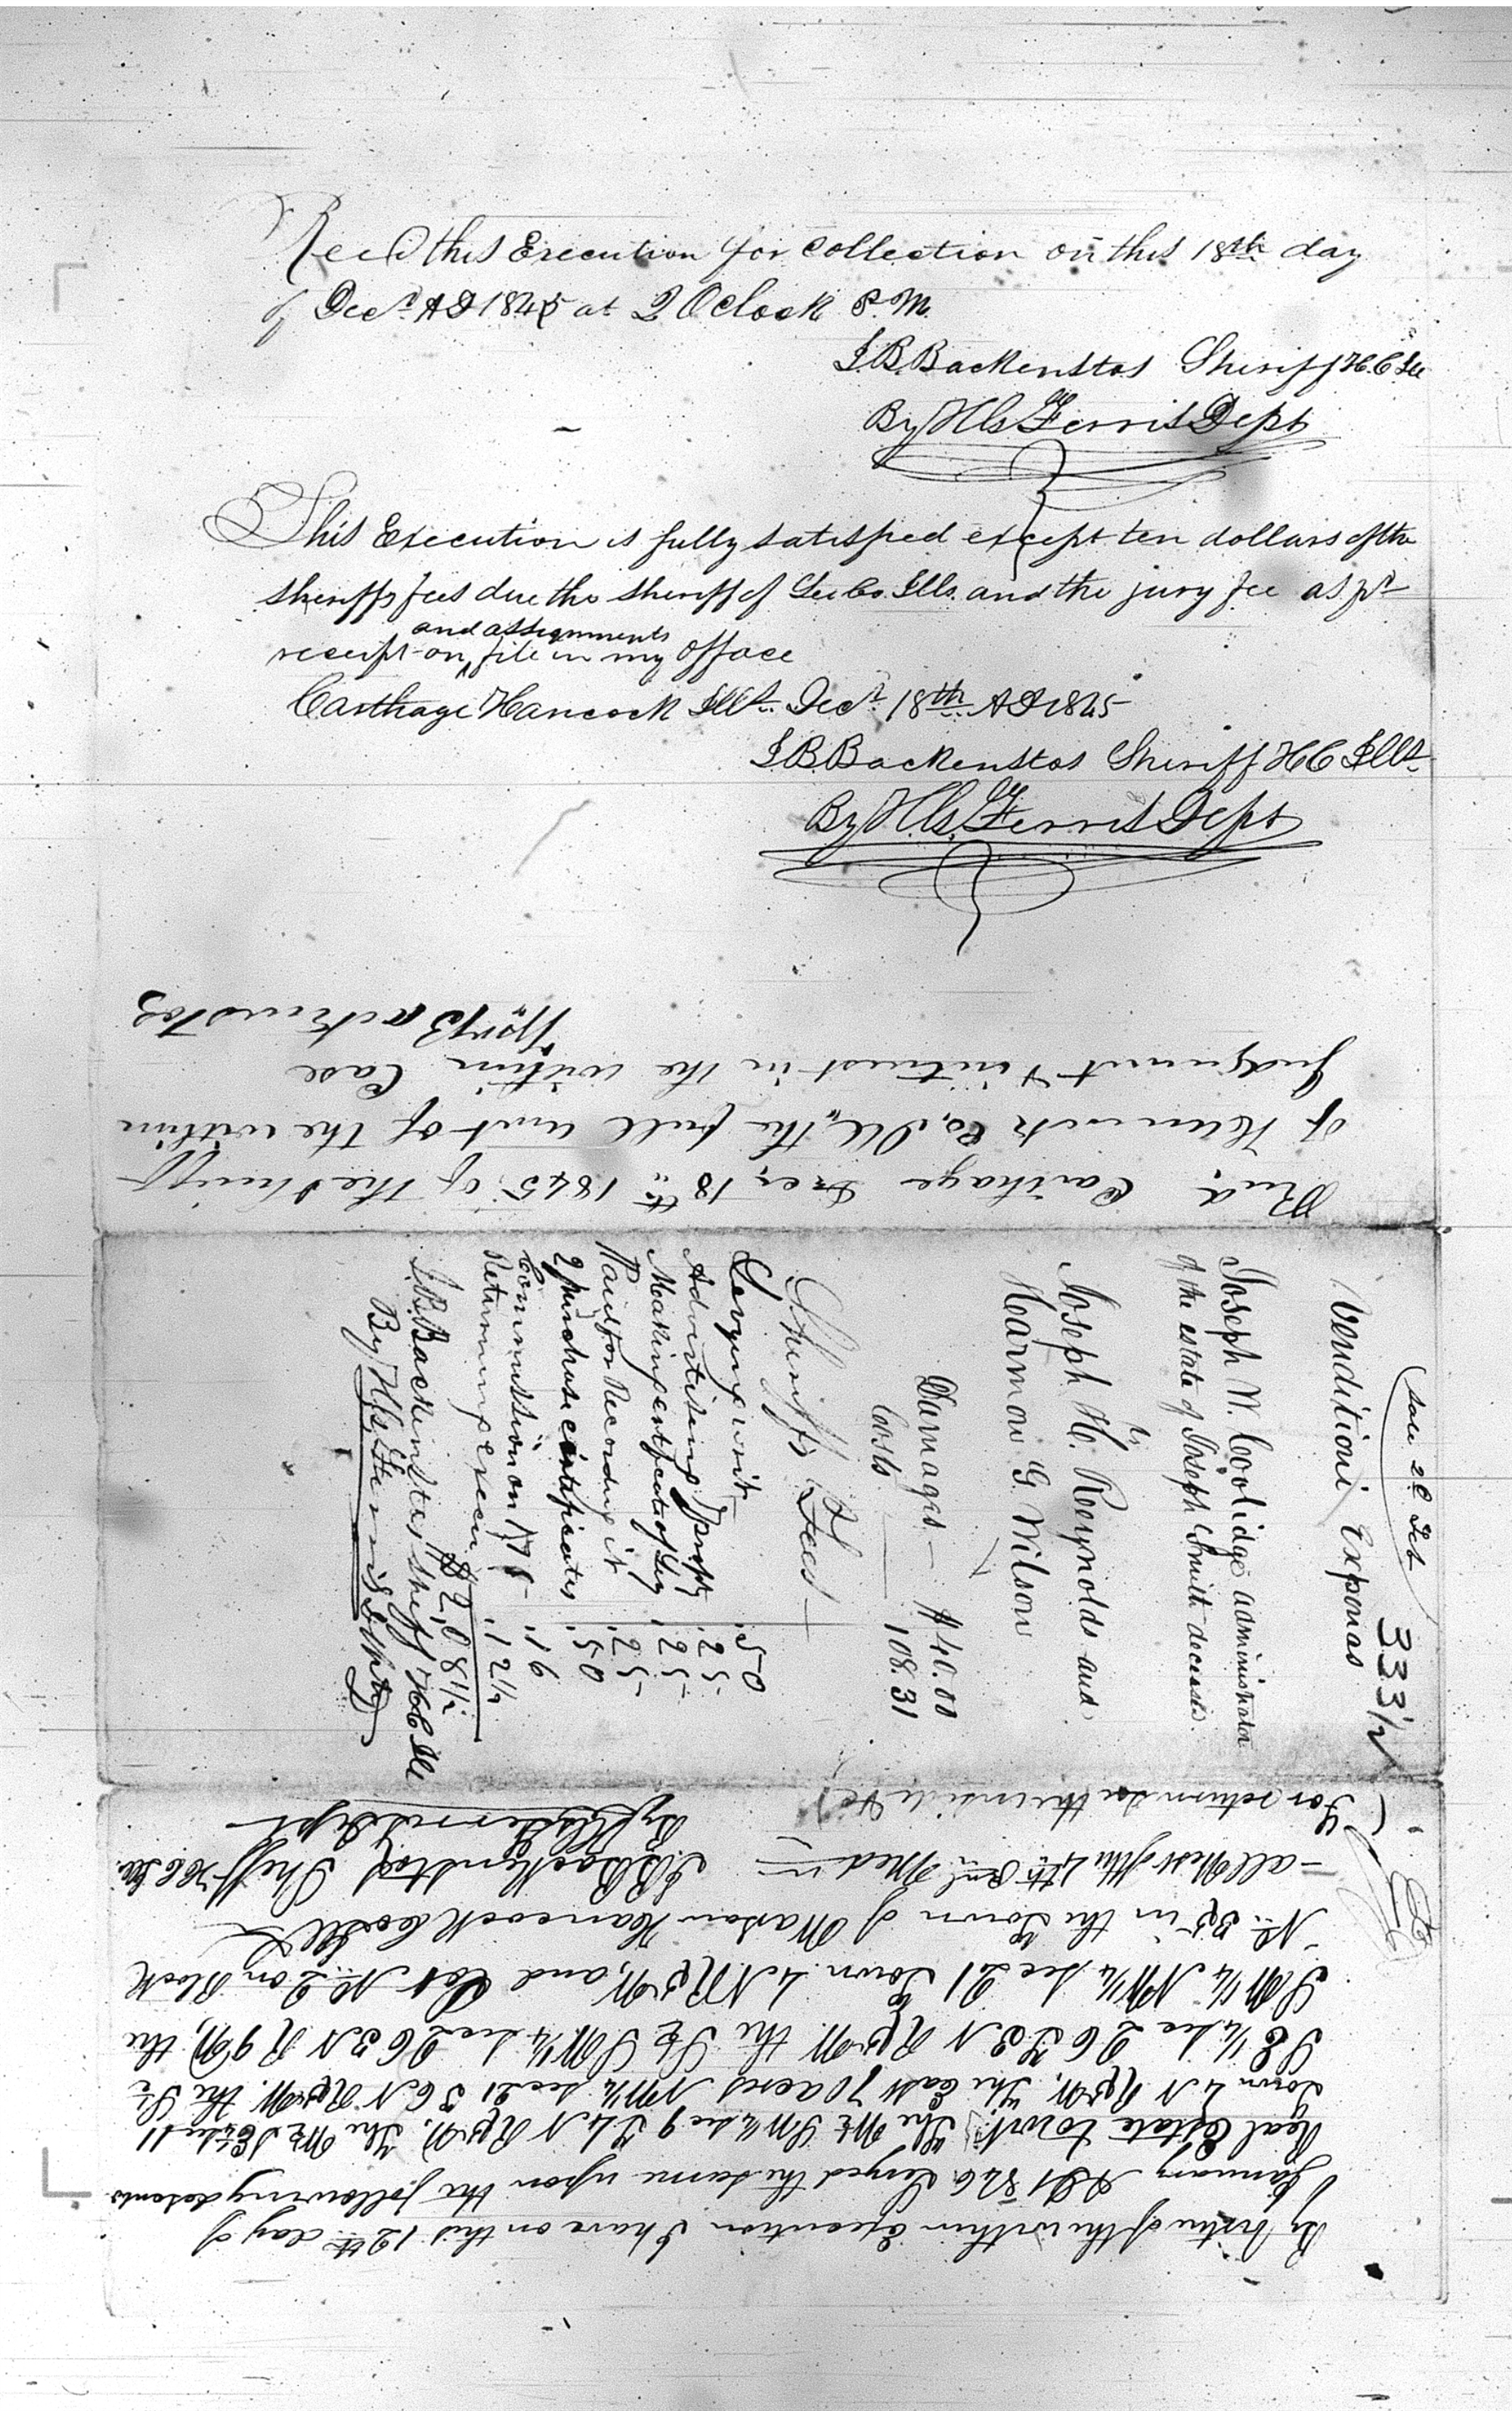 Recd this Execution for collection on this 18th day
of Decr. AD 1845 at 2 Oclock P.M.
J.B. Backenstos Sheriff H.C. Ills
By H G Ferris Dept
This Execution is fully satisfied except ten dollars of the
sheriffs fees due the sheriff of Lee Co. Ills. and the jury fee as pr
and assignments
receipt on file in my office
Carthage Hancock Ills. Decr 18th AD 1845
J.B. Backenstos Sheriff H C Ills.
By H G Ferris Dept
Recd. Carthage Dec. 18th 1845 of the Sheriff
of Hancock Co, Ill, the full amt of the within
Judgement & interest in the within Case
Backenstos
Sale 28 Feb
333 1/2
Venditioni Exponas
Joseph W. Coolidge administrator
of the estate of Joseph Smith deceasd.
vs
Joseph H. Reynolds and
Harmon G. Wilson
Damages — $40.00
Costs — 108.31
Sheriffs Fees
Levying writ .50
Advertising property .25
Making certificate of Levy .25
Paid for Recording it .25
2 purchase certificates .50
Commission on .16
Returning execu .12½
$2.08½
J.B. Backenstos Sheff H C Ills
By H G Ferris Dept
By virtue of the within Execution I have on this 12th day of
January AD 1846 levyed the same upon the following
Real Estate towit. The W½ SW¼ sec 9 T4 N R 8 W, The W½
Town 4 N R 8 W. The East 70 acres NW¼ sec 21 N R 8 W. the
SE ¼ sec 26 T 3 N R 8 W the SW¼ sec 26 3 N R 9 W, the
SW¼ NW¼ sec 21 Town 4 N R 8 W, and Lot No. 2 on Block
No. in the Town of Warsaw Hancock Co Ill
— all West of the 4th Prnl Medn — J.B. Backenstos Sheff H C Ills.
By H G Ferris Dept
For return see the inside &c